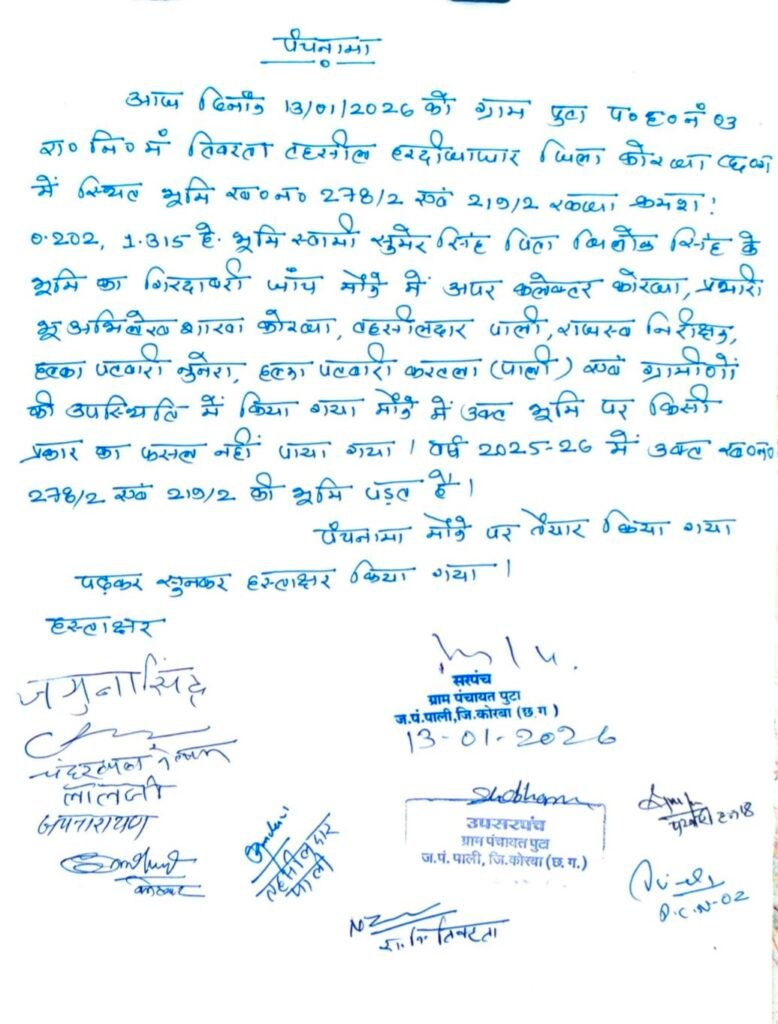 पंचनामा
आज दिनाँक 13/01/2026 को ग्राम पुटा प०ह०नं 03
रा० नि० मं तिवरता तहसील हरदीबाजार जिला कोरबा छ०ग०
में स्थित भूमि ख०न० 278/2 एवं 219/2 रकबा क्रमश:
0.202, 1.315 हे. भूमि स्वामी सुमेर सिंह पिता त्रिलोक सिंह के
भूमि का गिरदावरी जाँच मौके में अपर कलेक्टर कोरबा, प्रभारी
भू अभिलेख शाखा कोरबा, तहसीलदार पाली, राजस्व निरीक्षक,
हल्का पटवारी नुनेरा, हल्का पटवारी करतला (पाली) एवं ग्रामीणों
की उपस्थिति में किया गया मौके में उक्त भूमि पर किसी
प्रकार का फसल नहीं पाया गया। वर्ष 2025-26 में उक्त ख०न०
278/2 एवं 219/2 की भूमि पड़त है।
पंचनामा मौके पर तैयार किया गया
पढ़कर सुनकर हस्ताक्षर किया गया।
हस्ताक्षर
जमुनासिंह
सरपंच
ग्राम पंचायत पुटा
ज.पं.पाली,जि.कोरबा (छ.ग)
13-01-2026
लालजी
जयनारायण
कोटवार
तहसीलदार
पाली
Shobham
उपसरपंच
ग्राम पंचायत पुटा
ज.पं. पाली, जि.कोरबा (छ.ग.)
P.C.N-02
रा.नि. तिवरता